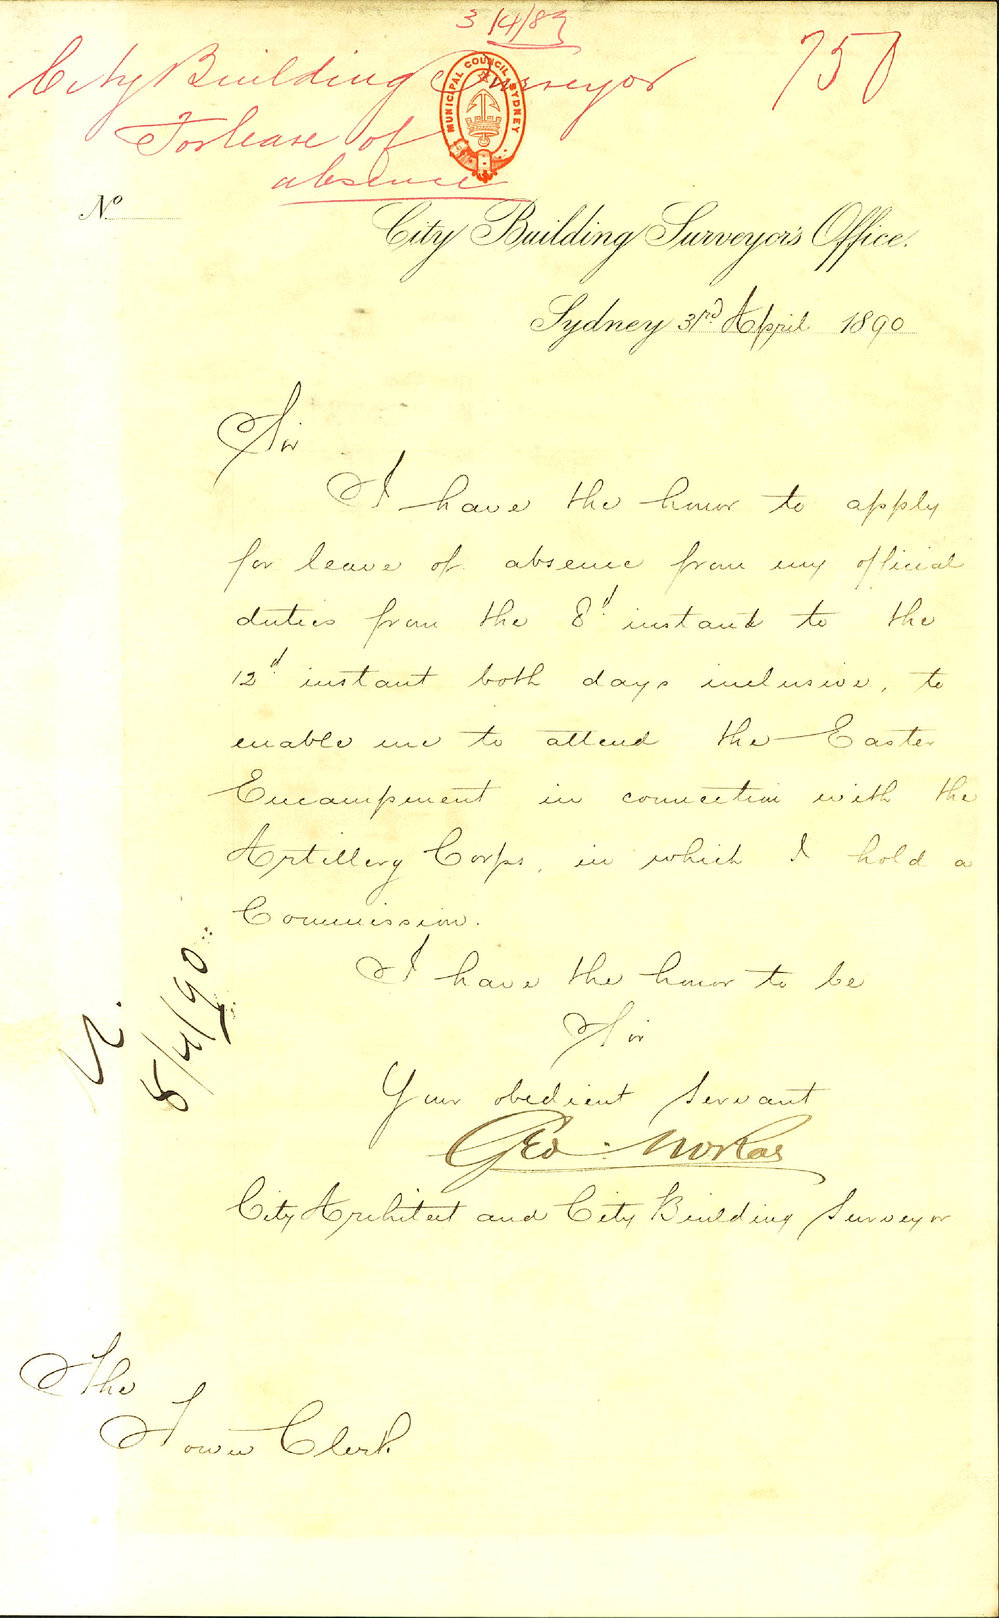 3/4/89
City Building Surveyor
750
For leave of
absence
MUNICIPAL COUNCIL SYDNEY
No
City Building Surveyor's Office.
Sydney 3rd April 1890
Sir
I have the honor to apply
for leave of absence from my official
duties from the 8d instant to the
12d instant both days inclusive, to
enable me to attend the Easter
Encampment in connection with the
Artillery Corps, in which I hold a
Commission.
I have the honor to be
Sir
Your obedient servant
Geo. McRae
City Architect and City Building Surveyor
8/4/90
The
Town Clerk